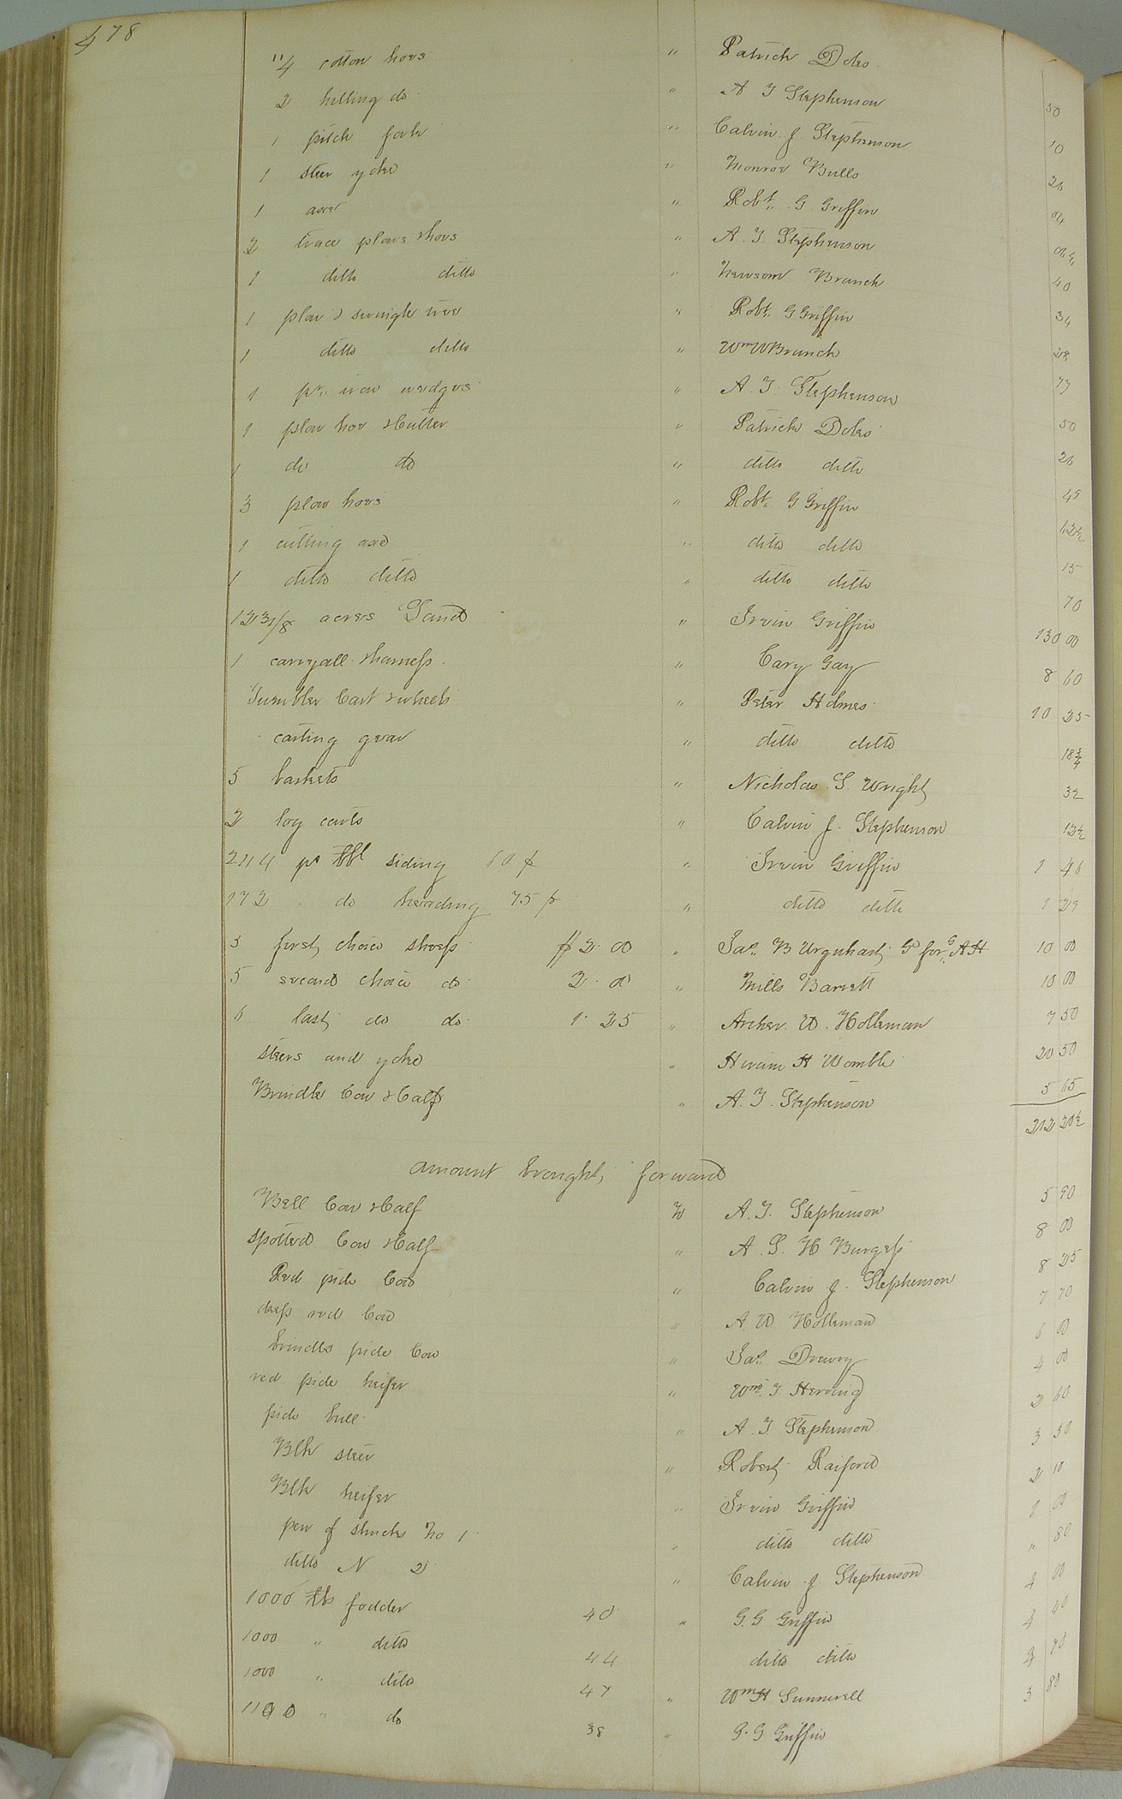 478
"4 cotton hoes " Patrick Doles 50
2 hilling do " A T Stephenson 10
1 pitch fork " Calvin J. Stephenson 26
1 steer yoke " Monroe Bulls
1 axe " Robt. G Griffin
2 trace plows & hoes " A. T. Stephenson 40
1 ditto ditto " Newsom Branch 34
1 plow & swingle tree " Robt. G Griffin 28
1 ditto ditto " Wm W Branch 77
1 pr. iron wedges " A. T. Stephenson 50
1 plow hoe & Cutter " Patrick Doles 26
1 do do " ditto ditto 45
3 plow hoes " Robt. G Griffin 12½
1 cutting axe " ditto ditto 15
1 ditto ditto " ditto ditto 70
123 1/8 acres Land " Irvin Griffin 130 00
1 carryall & harness " Cary Gay 8 60
Tumbler Cart & wheels " Peter Holmes 10 25
carting gear " ditto ditto 18¾
5 baskets " Nicholas S. Wright 32
2 log carts " Calvin J. Stephenson 12½
244 ps bbl siding 60 ¢ " Irvin Griffin 1 46
172 do heading 75 ¢ " ditto ditto 1 29
5 first choice sheep $2.00 " Jas. B Urquhart Gd for G A H 10 00
5 second choice do 2.00 " Mills Barrett 10 00
6 last do do 1.25 " Archer W. Holleman 7 50
steers and yoke " Hiram H Womble 20 50
Brindle Cow & Calf " A. T. Stephenson 5 65
212 20½
amount brought forward
Bell Cow & Calf To A. T. Stephenson 5 90
spotted Cow & Calf " A. S. H Burgess 8 00
Red pide Cow " Calvin J. Stephenson 8 25
deep red Cow " A W Holleman 7 70
brindle pide Cow " Jas. Drewry 6 00
red pide heifer " Wm. T Herring 4 00
pide bull " A. T Stephenson 2 60
Blk steer " Robert Raiford 3 50
Blk heifer " Irvin Griffin 2 10
pen of shuck No 1 " ditto ditto 1 00
ditto N 2 " Calvin J Stephenson " 80
1000 lbs fodder 40 " G. G Griffin 4 00
1000 " ditto 44 ditto ditto 4 40
1000 " ditto 47 " Wm H Summerell 4 70
1100 " do 38 " G. G Griffin 3 80